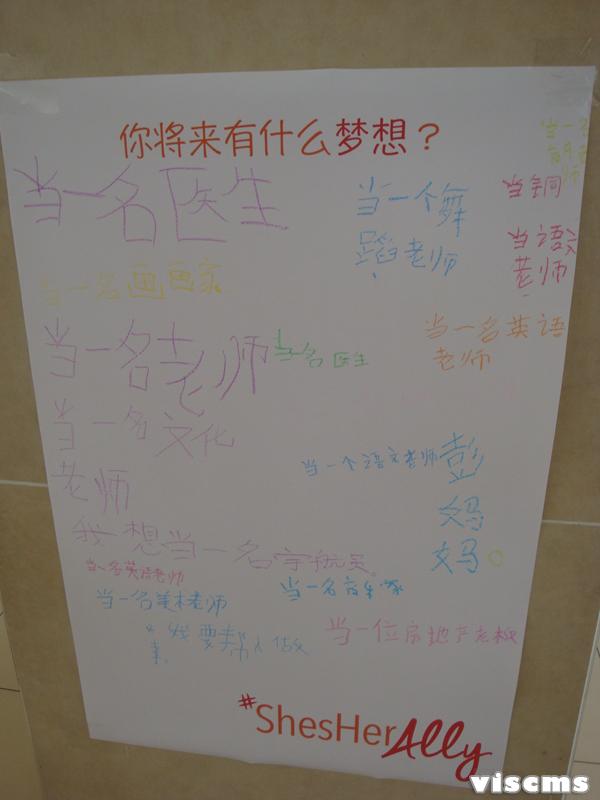 你将来有什么梦想？
当一名医生
当一个舞
蹈老师
当一名
师
当铜
当语文
老师
当一名画画家
当一名老师
当名医生
当一名英语
老师
当一名文化
老师
当一个语文老师
彭
妈
妈
我想当一名宇航员。
当一名英语老师
当一名美术老师
当一名音乐家
我要帮人做
事
当一位房地产老板
#ShesHerAlly
viscms